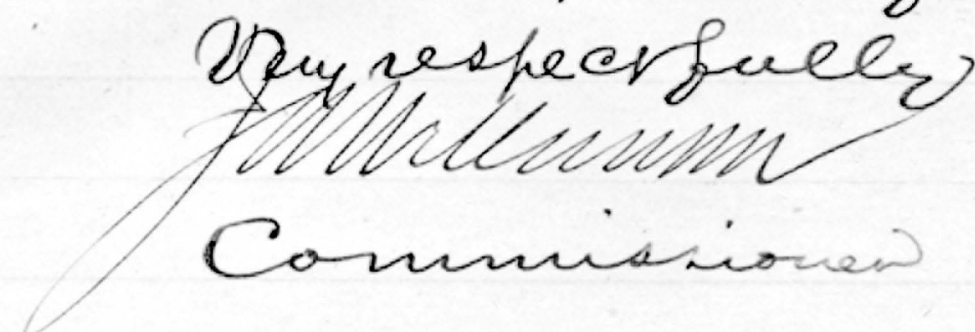 Very respectfully
Commissioner